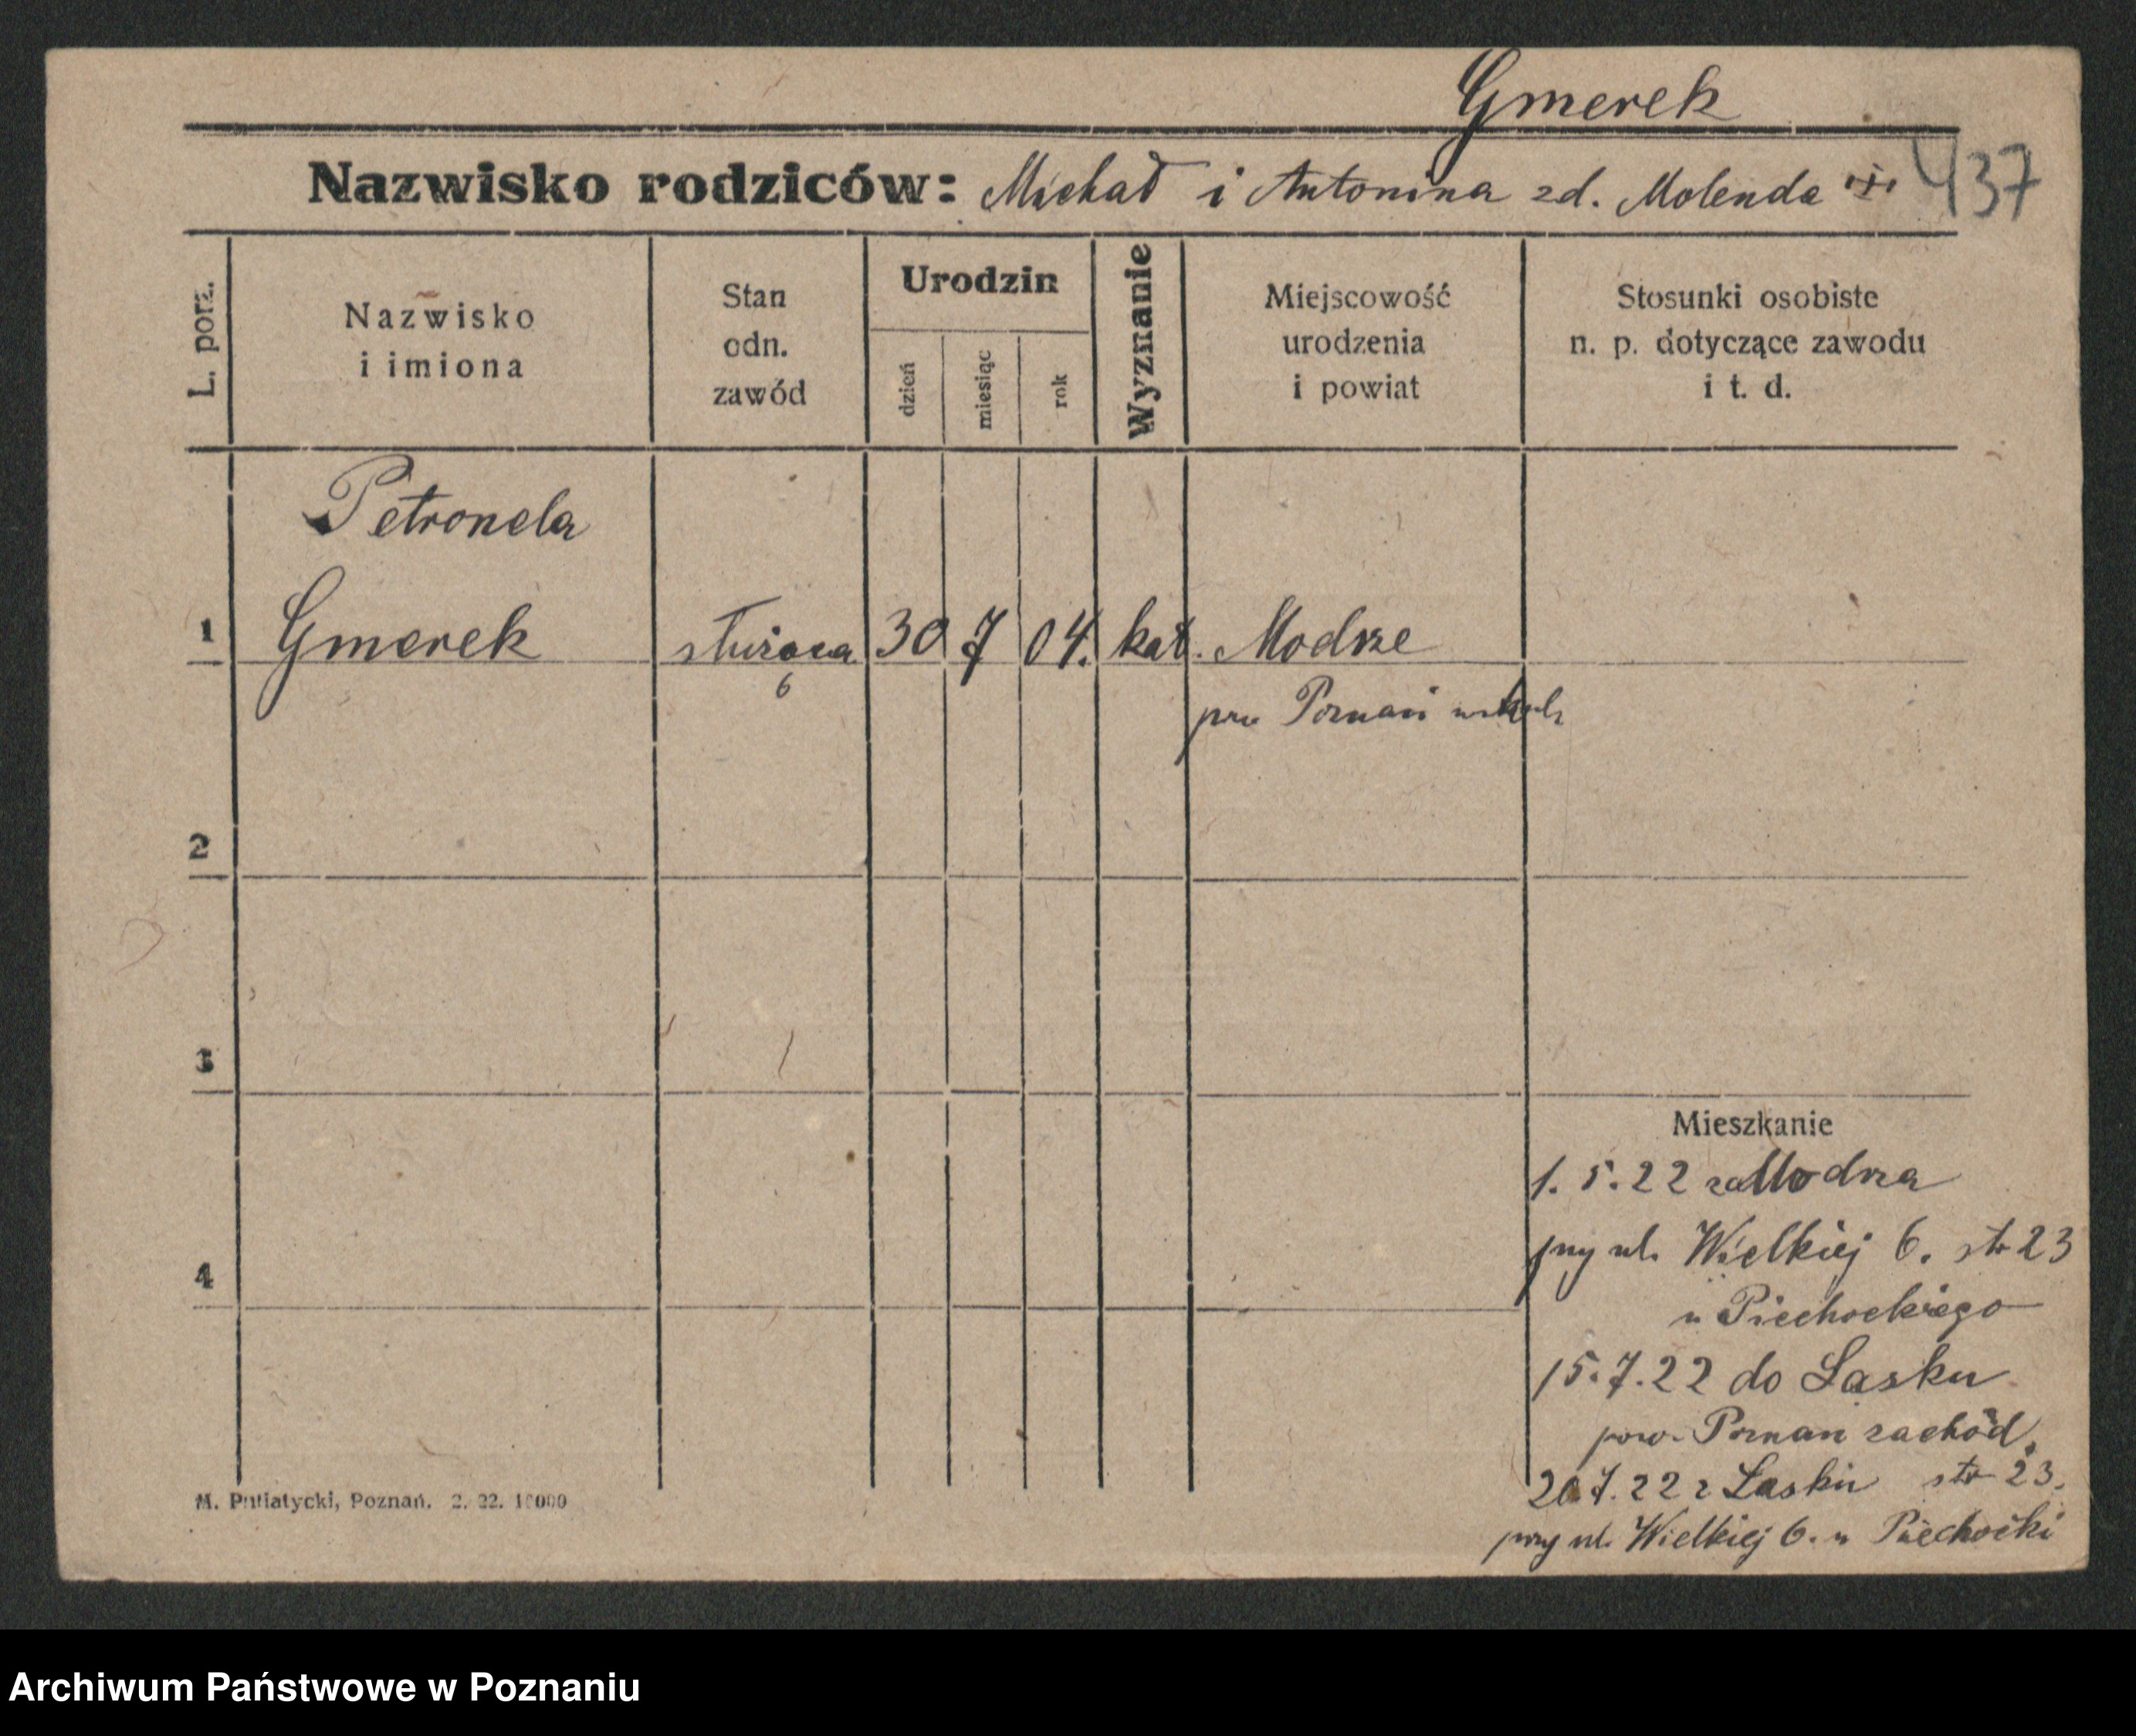 Gmerek
Nazwisko rodziców: Michał i Antonina zd. Molenda 437
L. porz.
Nazwisko
i imiona
Stan
odn.
zawód
Urodzin
dzień
miesiąc
rok
Wyznanie
Miejscowość
urodzenia
i powiat
Stosunki osobiste
n. p. dotyczące zawodu
i t. d.
Petronela
1 Gmerek służąca 30 7 04. kat. Modrze
6
Poznań
2
3
4
Mieszkanie
1.5.22 z Modrza
przy ul. Wielkiej 6. str 23
u Piechockiego
15.7.22 do Lasku
pow. Poznan zachód.
20.7.22 z Lasku str 23.
przy ul. Wielkiej 6. u Piechocki
M. Putiatycki, Poznań. 2. 22. 10000
Archiwum Państwowe w Poznaniu